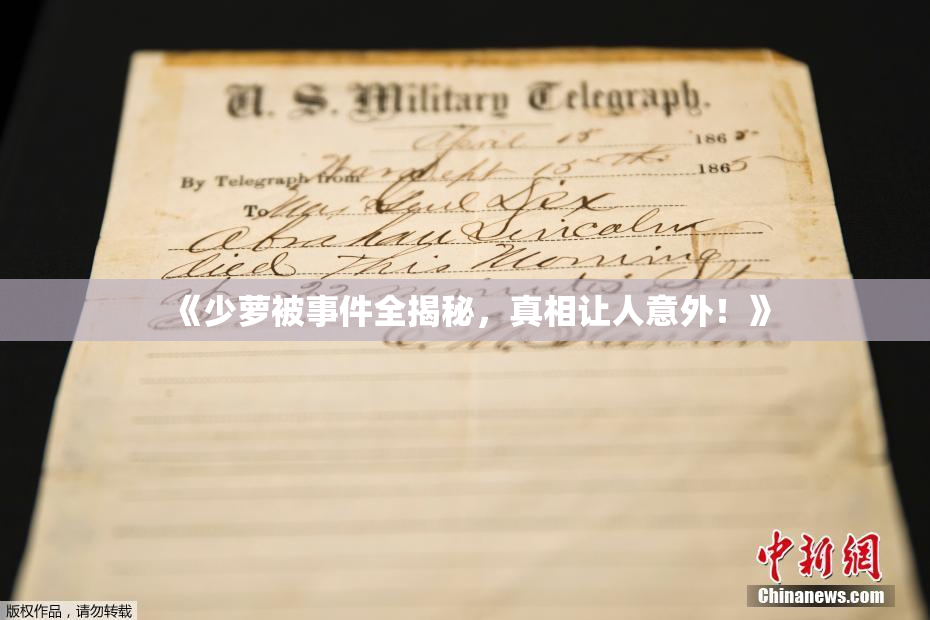 U. S. Military Telegraph.
April 15 1865
By Telegraph from War Dept 15th 1865
To Maj Genl Dix
Abraham Lincoln
died this Morning
22 minutes after
《少萝被事件全揭秘，真相让人意外！》
E. M. Stanton
中新网
Chinanews.com
版权作品，请勿转载